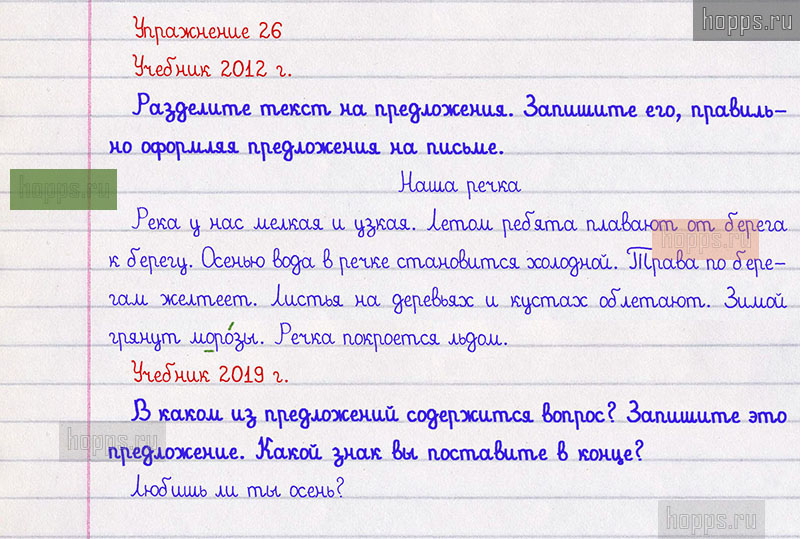 hopps.ru
Упражнение 26
Учебник 2012 г.
Разделите текст на предложения. Запишите его, правиль-
но оформляя предложения на письме.
hopps.ru
Наша речка
Река у нас мелкая и узкая. Летом ребята плавают от берега
hopps.ru
к берегу. Осенью вода в речке становится холодной. Трава по бере-
гам желтеет. Листья на деревьях и кустах облетают. Зимой
грянут моро́зы. Речка покроется льдом.
Учебник 2019 г.
В каком из предложений содержится вопрос? Запишите это
hopps.ru
предложение. Какой знак вы поставите в конце?
Любишь ли ты осень?
hopps.ru